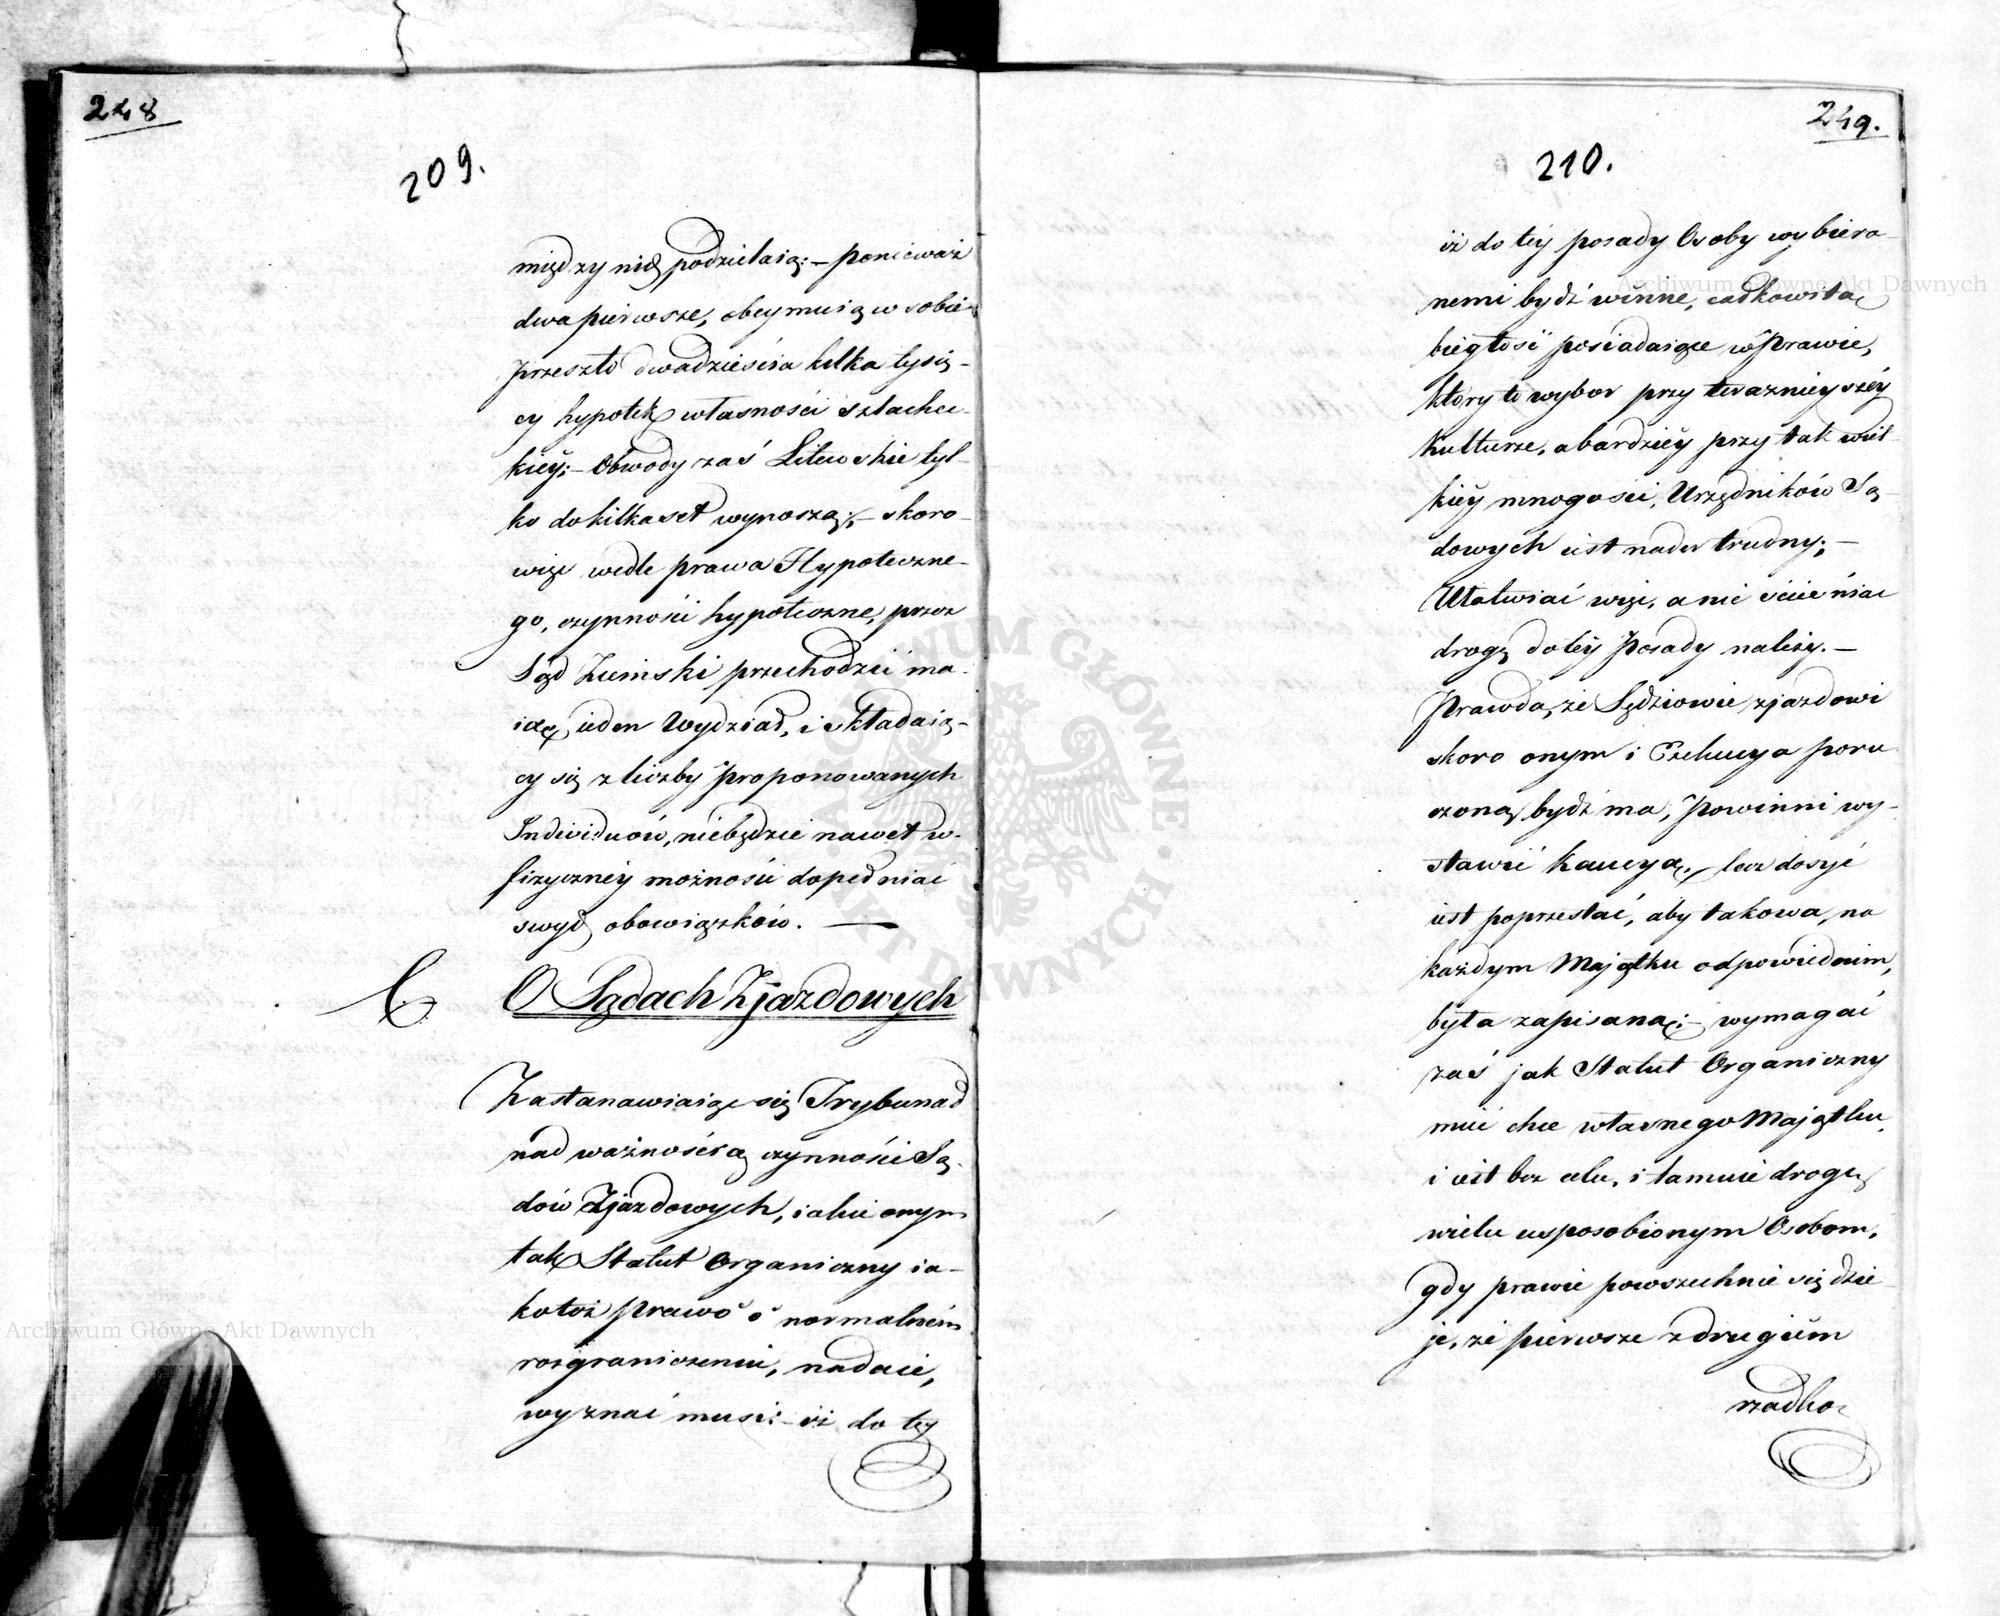 248
209.
między nię podzielaią:- ponieważ
dwa pierwsze, obeymuią w sobie
przeszło dwadzieścia kilka tysię-
cy hypotek własności szlachec-
kiey;- Obwody zaś Litewskie tyl-
ko do kilkaset wynoszą;- skoro
więc wedle prawa Hypoteczne-
go, czynności hypoteczne, przez
Sąd Ziemski przechodzić ma-
ią, ieden Wydział, i składaią-
cy się z liczby proponowanych
Individuów, niebędzie nawet w-
fizyczney możności dopełniać
swych obowiązków. —
C. O Sądach Zjazdowych
Zastanawiaiąc się Trybunał
nad ważnością czynności Są-
dów Zjazdowych, iakie onym
tak Statut Organiczny ia-
kotoż prawo o normalném
rozgraniczeniu, nadaie,
wyznać musi:- iż do tey
249.
210.
iż do téy posady Osoby wybiera-
nemi bydź winne, całkowitą
biegłość posiadaiące w Prawie,
który to wybor przy teraznieyszéy
Kulturze, a bardziéy przy tak wiel-
kiéy mnogości, Urzędników Są-
dowych iest nader trudny;-
Ułatwiać więc, a nie ścieśniac
drogę do téy Posady należy.-
Prawda, że Sędziowie zjazdowi
skoro onym i Exekucya poru-
czoną bydź ma, powinni wy-
stawić Kaucyą, lecz dosyć
iest poprzestać, aby takowa, na
każdym Majątku odpowiednim,
była zapisaną;- wymagać
zaś jak Statut Organiczny
mieć chce własnego Majątku,
i iest bez celu, i tamuie drogę
wielu usposobionym Osobom,
gdy prawie powszechnie się dzie-
je, że pierwsze z drugiém
rzadko
Archiwum Główne Akt Dawnych
Archiwum Główne Akt Dawnych
ARCHIWUM GŁÓWNE · AKT DAWNYCH ·